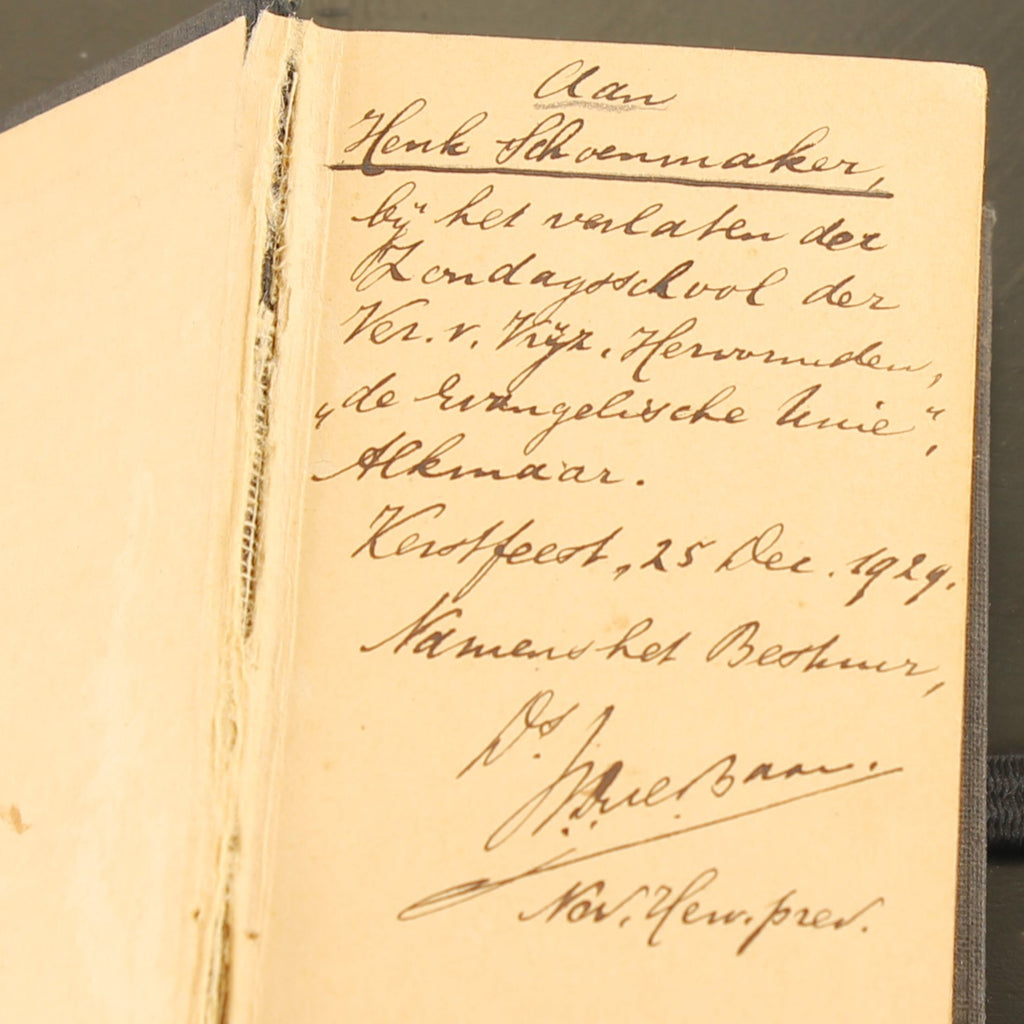 Aan
Henk Schoenmaker,
bij het verlaten der
Zondagsschool der
Ver. v. Vrijz. Hervormden,
„de Evangelische Unie",
Alkmaar.
Kerstfeest, 25 Dec. 1929.
Namens het Bestuur,
Ds.
Ned. Herv. pred.